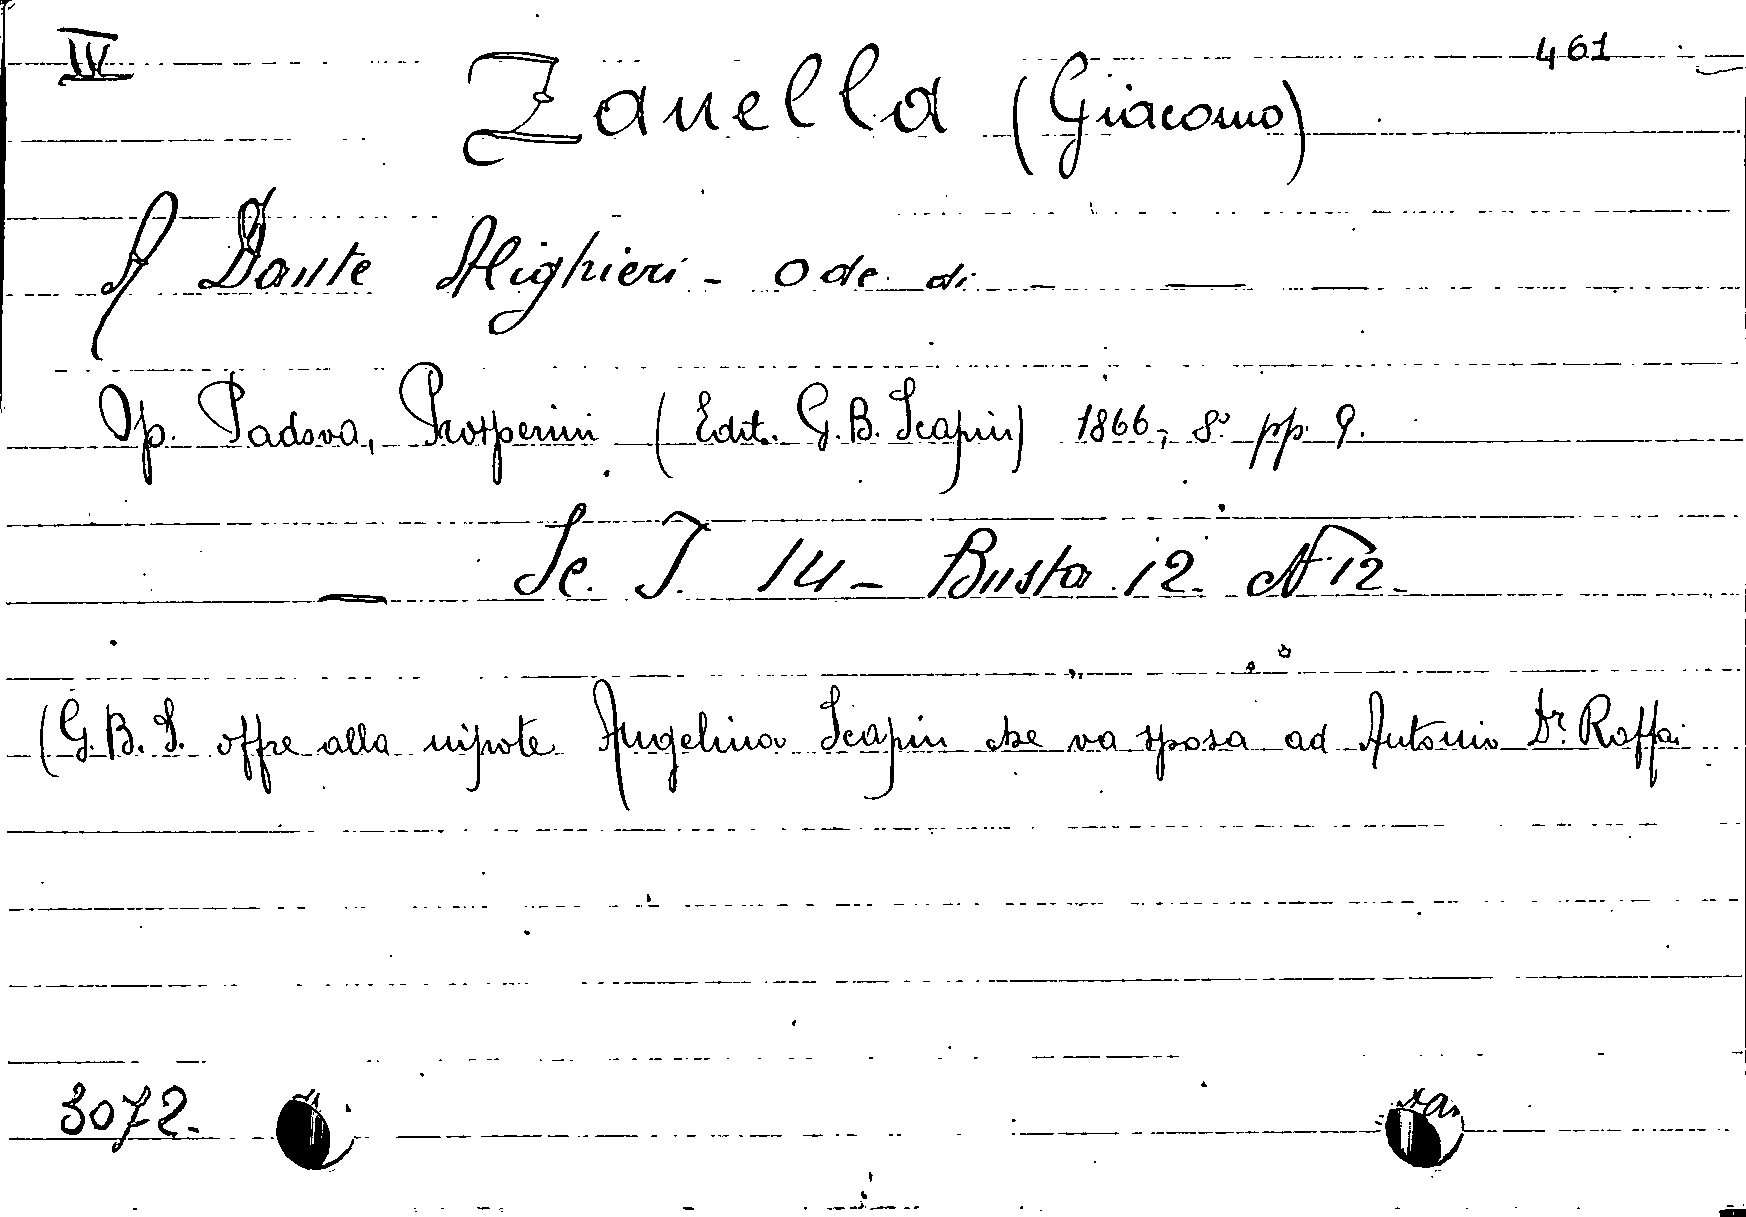 IV 461
Zanella (Giacomo)
A Dante Alighieri - Ode di — —
Op. Padova, Prosperini (Edit. G. B. Scapin) 1866, 8° pp. 9.
— Sc. I. 14 - Busta 12. N 12.
(G. B. S. offre alla nipote Angelina Scapin che va sposa ad Antonio Dr. Raffai
3072.